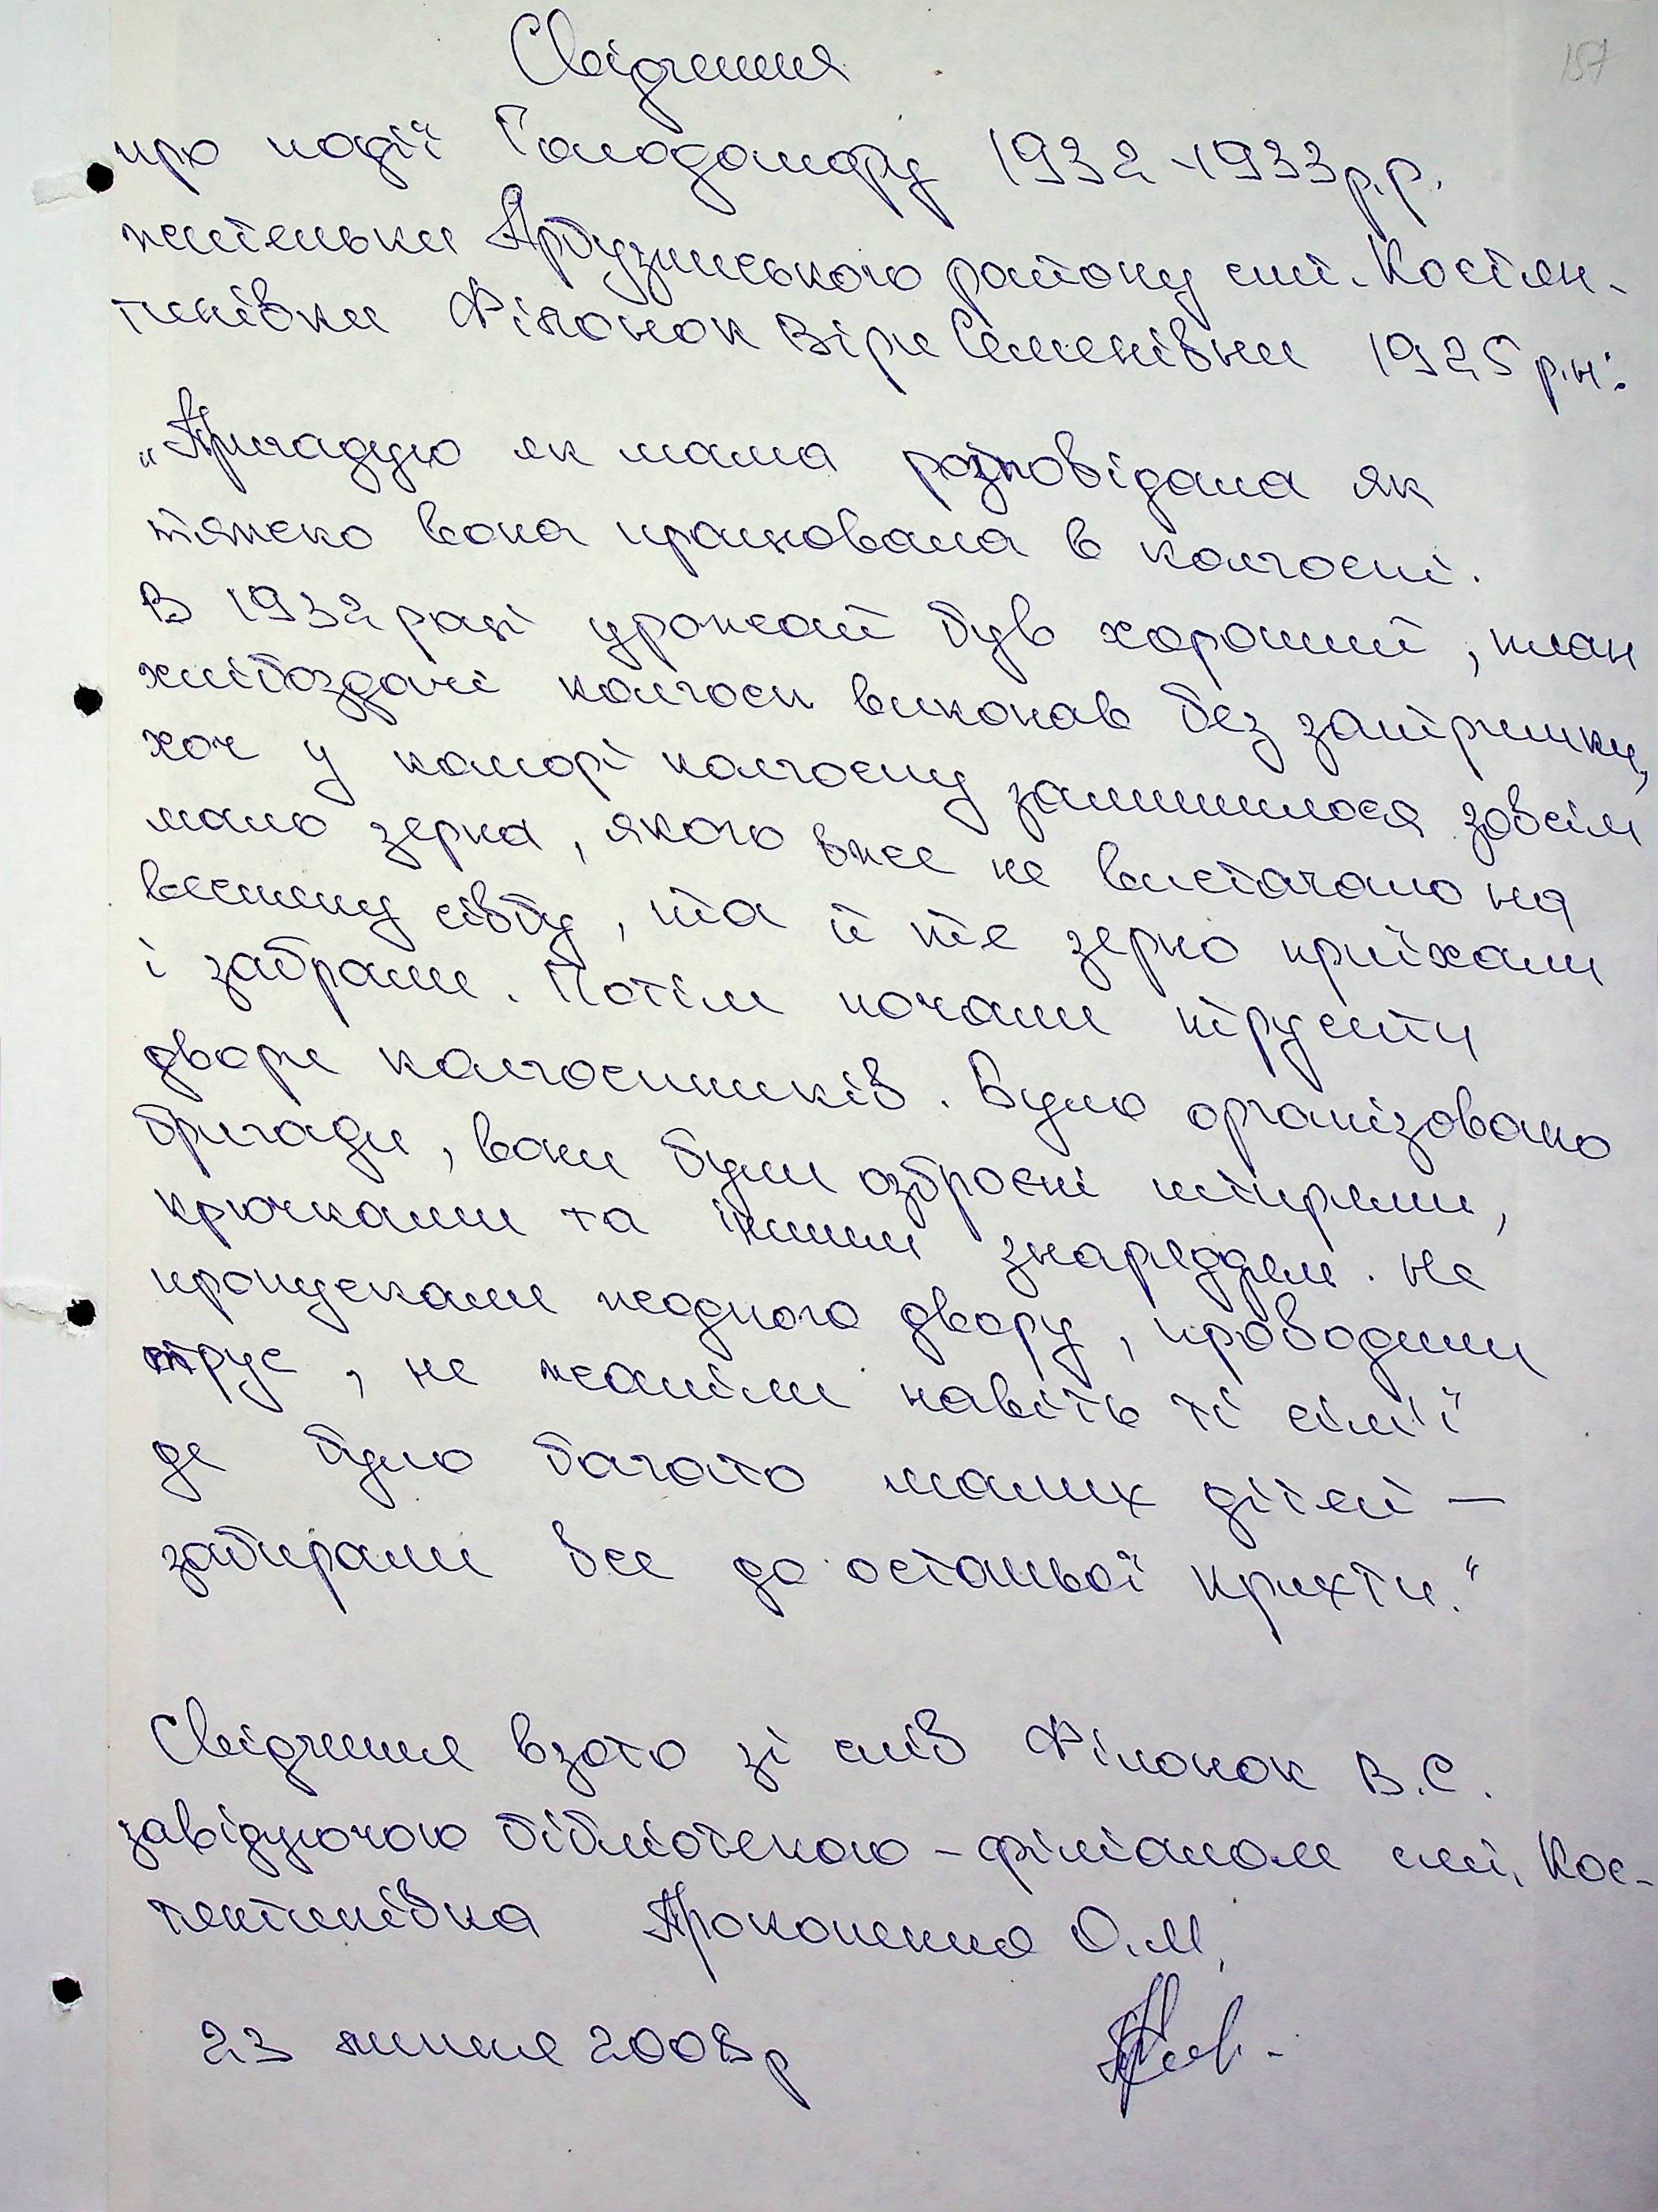 157
Свідчення
про події Голодомору 1932-1933р.р.
жительки Арбузинського району смт. Костян-
тинівки Філонок Віри Семенівни 1925 р.н.:
„Пригадую як мама розповідала як
тяжко вона працювала в колгоспі.
В 1932 році урожай був хороший, план
хлібоздачі колгосп виконав без затримки,
хоч у коморі колгоспу залишилося зовсім
мало зерна, якого вже не вистачало на
весняну сівбу, та й те зерно приїхали
і забрали. Потім почали трусити
двори колгоспників. Було організовано
бригади, вони були озброєні штирями,
крючками та іншим знаряддям. Не
пропускали неодного двору, проводили
трус, не жаліли навіть ті сім'ї
де було багато малих дітей —
забирали все до останьої крихти."
Свідчення взято зі слів Філонок В.С.
завідуючою бібліотекою-філіалом смт. Кос-
тянтинівка Прокопенко О.М.
23 липня 2008р